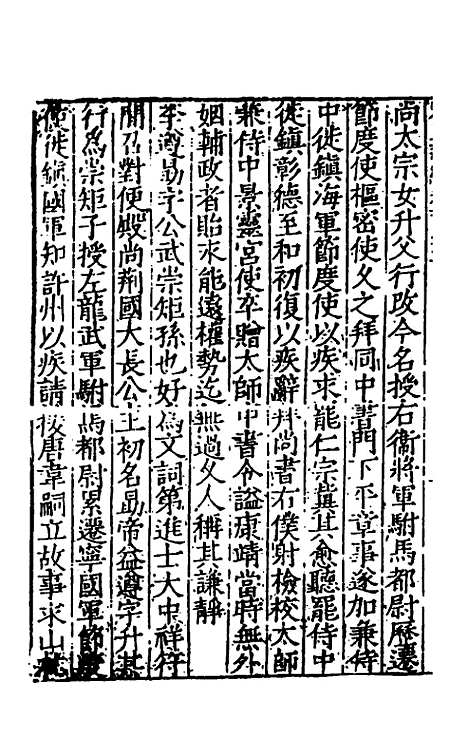 尚太宗女升父行改今名授右衞將軍駙馬都尉歷遷
節度使樞密使久之拜同中書門下平章事遂加兼侍
中徙鎮海軍節度使以疾求罷仁宗兾其愈聽罷侍中
徙鎮彰德至和初復以疾辭拜尚書右僕射檢校太師
兼侍中景靈宮使卒贈太師中書令謚康靖當時無外
姻輔政者貽永能遠權勢迄無過久人稱其謙靜
李遵勗字公武崇矩孫也好爲文詞第進士大中祥符
間召對便殿尚荆國大長公主初名勗帝益遵字升其
行爲崇矩子授左龍武軍駙馬都尉累遷寧國軍節度
使徙鎮國軍知許州以疾請按唐韋嗣立故事求山